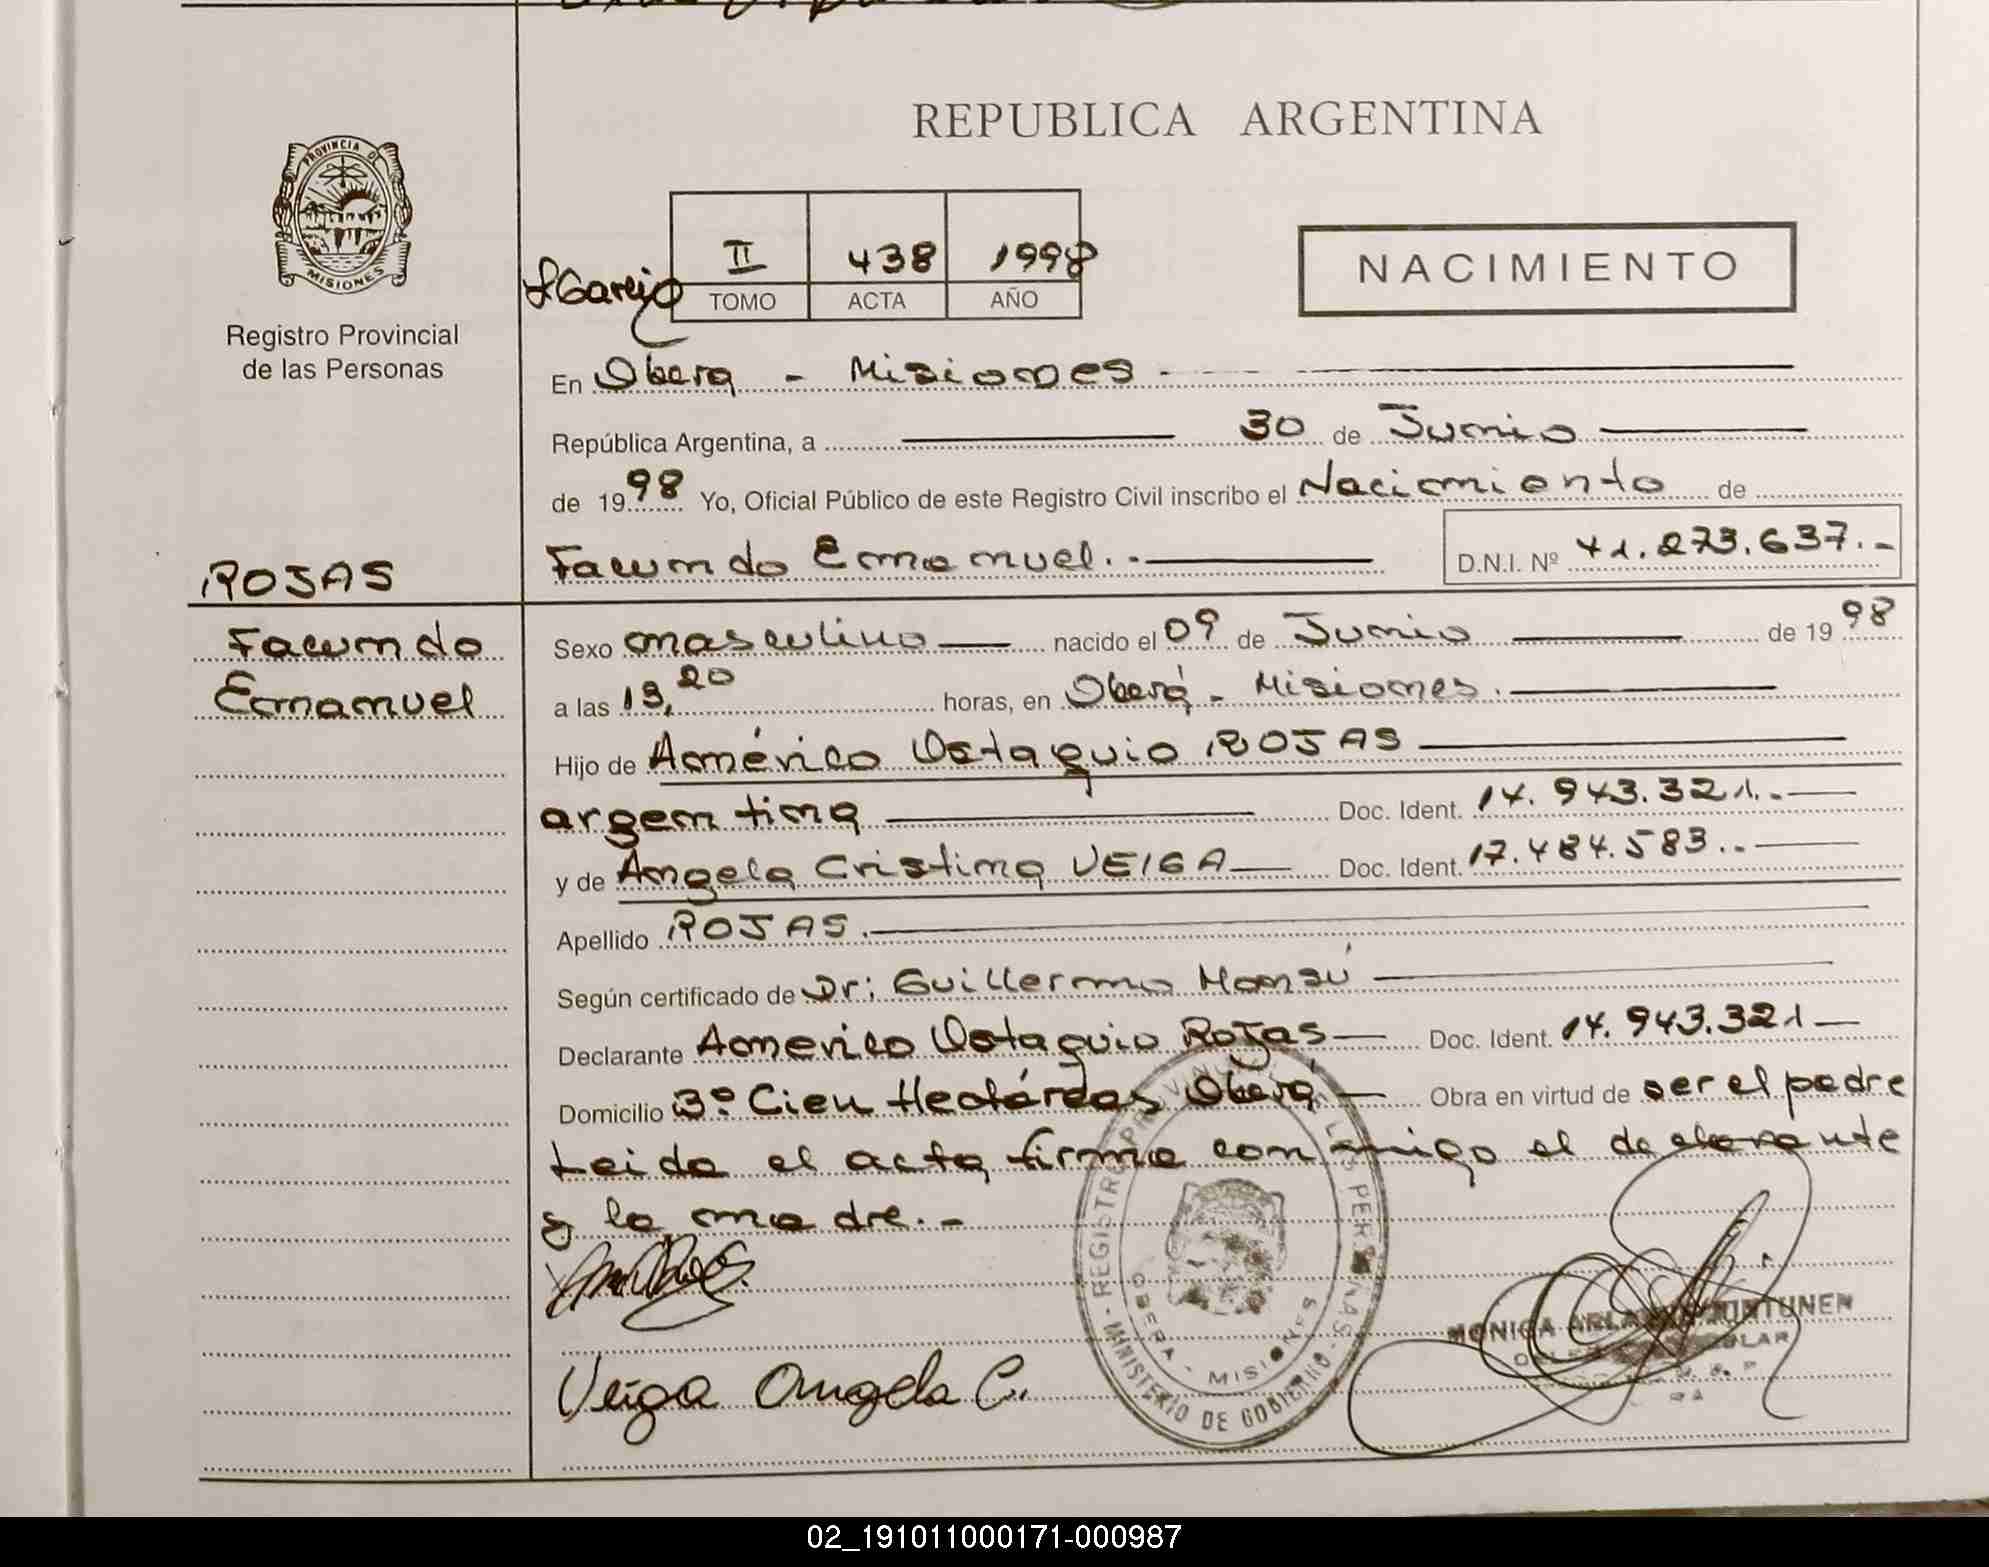 REPUBLICA ARGENTINA
PROVINCIA DE
MISIONES
Registro Provincial
de las Personas
II 438 1998
TOMO ACTA AÑO
NACIMIENTO
En Oberá - Misiones -
República Argentina, a 30 de Junio
de 1998 Yo, Oficial Público de este Registro Civil inscribo el Nacimiento de
ROJAS
Facundo Emanuel.- D.N.I. Nº 41.273.637.-
Facundo
Emmanuel
Sexo masculino nacido el 09 de Junio de 1998
a las 13,20 horas, en Oberá - Misiones.
Hijo de Américo Ostaquio ROJAS
argentina Doc. Ident. 14.943.321.-
y de Angela Cristina VEIGA Doc. Ident. 17.484.583.-
Apellido ROJAS.
Según certificado de Dr: Guillermo Monsú
Declarante Americo Ostaquio Rojas Doc. Ident. 14.943.321
Domicilio 3º Cien Hectáreas Oberá Obra en virtud de ser el padre
Leida el acta firma conmigo el declarante
y la madre.-
Veiga Angela C.
REGISTRO PROVINCIAL DE LAS PERSONAS - MINISTERIO DE GOBIERNO -
OBERA - MISIONES
MONICA
02_191011000171-000987